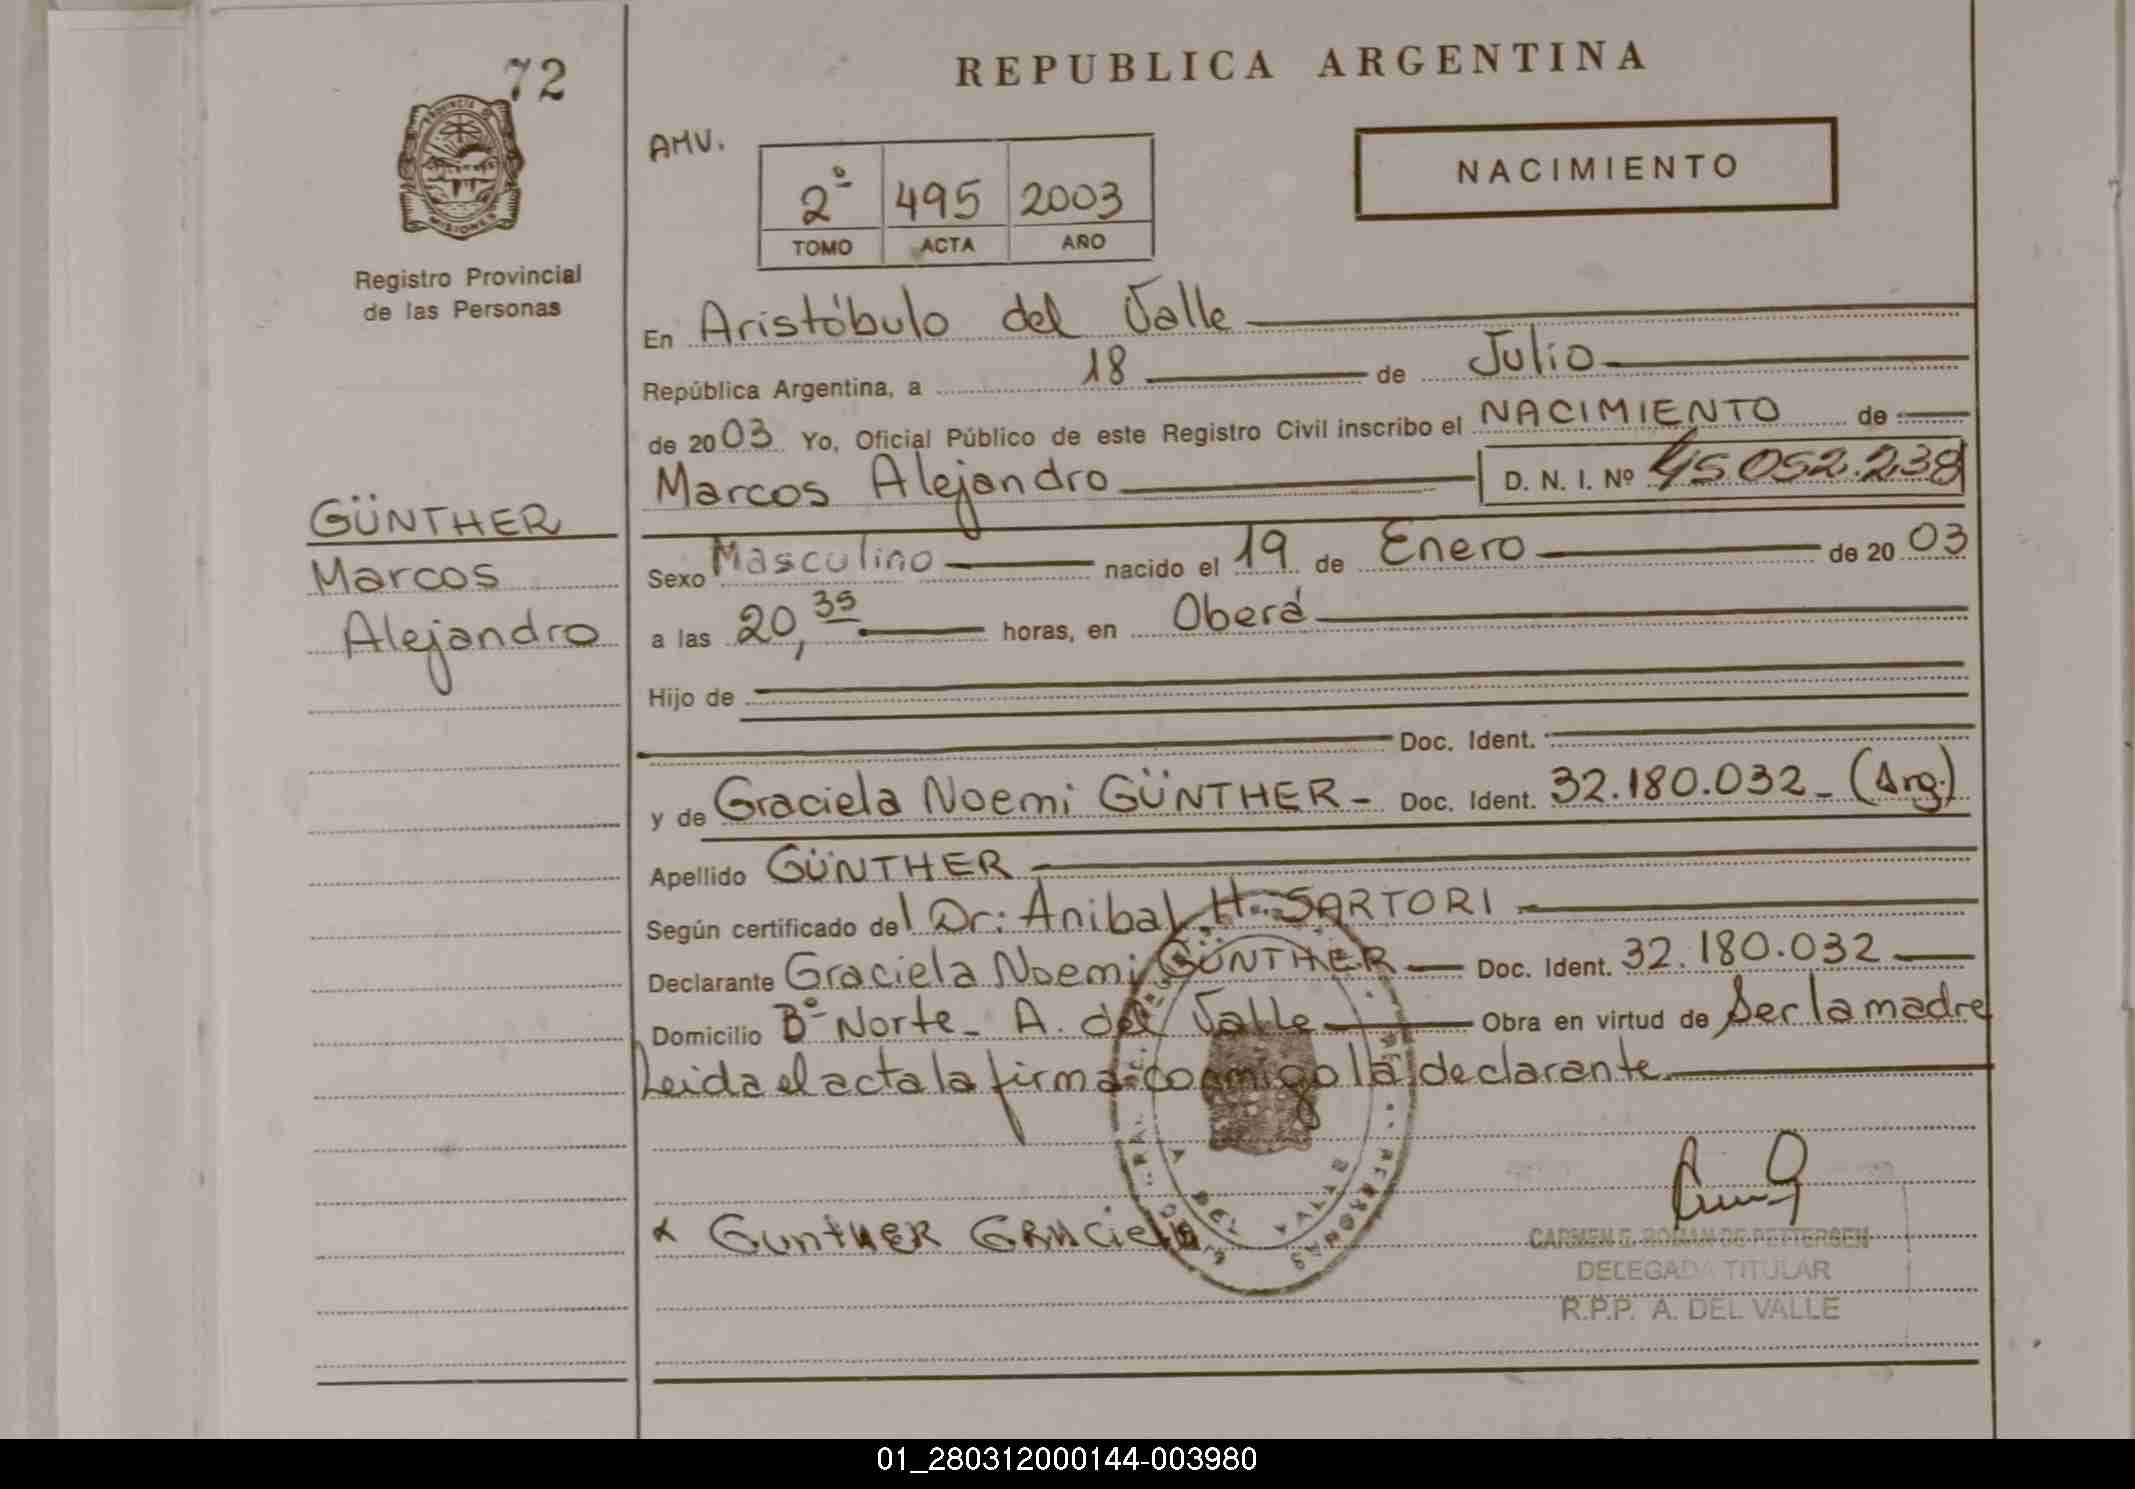 72
PROVINCIA DE
MISIONES
Registro Provincial
de las Personas
GÜNTHER
Marcos
Alejandro
REPUBLICA ARGENTINA
AMV.
2º 495 2003
TOMO ACTA AÑO
NACIMIENTO
En Aristóbulo del Valle
República Argentina, a 18 de Julio
de 2003 Yo, Oficial Público de este Registro Civil inscribo el NACIMIENTO de
Marcos Alejandro D. N. I. Nº 45.052.238
Sexo Masculino nacido el 19 de Enero de 2003
a las 20,35 horas, en Oberá
Hijo de
Doc. Ident.
y de Graciela Noemi GÜNTHER - Doc. Ident. 32.180.032 - (Arg.)
Apellido GÜNTHER
Según certificado del Dr: Anibal H. SARTORI
Declarante Graciela Noemi GÜNTHER - Doc. Ident. 32.180.032
Domicilio Bº Norte - A. del Valle Obra en virtud de Ser la madre
Leida el acta la firma conmigo la declarante
A DEL VALLE
PERSONAS
x GuntHER GRACiela
CARMEN G. ROMAN DE PETTERSEN
DELEGADA TITULAR
R.P.P. A. DEL VALLE
01_280312000144-003980